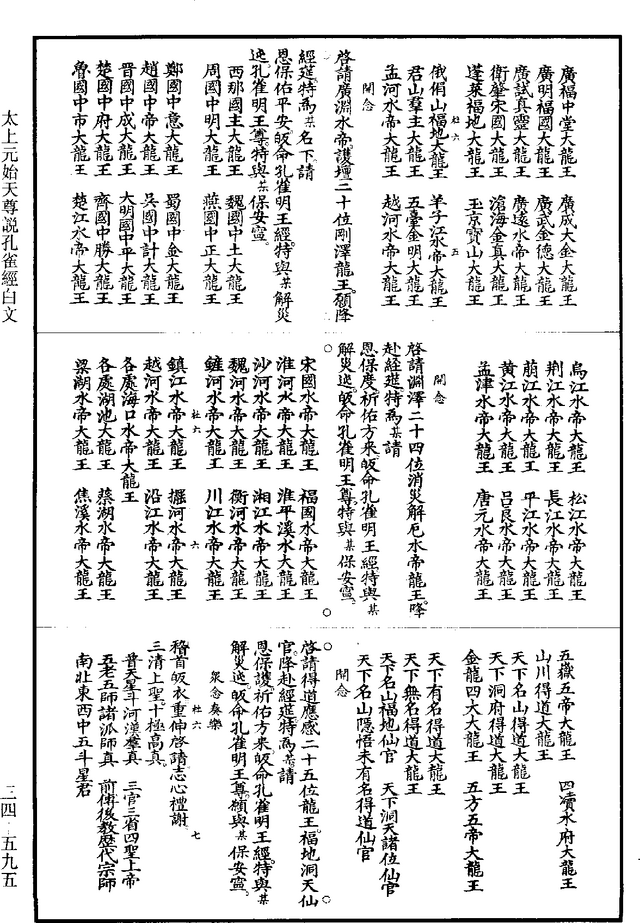 廣福中堂大龍王　廣成大金大龍王
廣明福國大龍王　廣武金德大龍王
廣試真靈大龍王　廣遠水帝大龍王
衛肇宋國大龍王　滄海金真大龍王
蓬萊福地大龍王　玉京寶山大龍王
杜六　五
俄俏山福地大龍王　羊子江水帝大龍王
君山羣主大龍王　五臺金明大龍王
孟河水帝大龍王　越河水帝大龍王
開念
啓請廣淵水帝護壇二十位剛澤龍王願降
經筵特為某名下請
恩保佑平安皈命孔雀明王經特與某解災
迍孔雀明王尊特與某保安寧
西那國主大龍王　魏國中土大龍王
周國中明大龍王　燕國中正大龍王
鄭國中意大龍王　蜀國中金大龍王
趙國中帝大龍王　吳國中計大龍王
晉國中成大龍王　大明國中平大龍王
楚國中府大龍王　齊國中勝大龍王
魯國中市大龍王　楚江水帝大龍王
烏江水帝大龍王　松江水帝大龍王
荆江水帝大龍王　長江水帝大龍王
萠江水帝大龍王　平江水帝大龍王
黄江水帝大龍王　呂良水帝大龍王
孟津水帝大龍王　唐元水帝大龍王
開念
啓請淵澤二十四位消災解厄水帝龍王降
赴經筵特為某請
恩保度祈佑方來皈命孔雀明王經特與某
解災迍皈命孔雀明王尊特與某保安寧
宋國水帝大龍王　福國水帝大龍王
淮河水帝大龍王　淮平溪水大龍王
沙河水帝大龍王　湘江水帝大龍王
魏河水帝大龍王　衡河水帝大龍王
鏟河水帝大龍王　川江水帝大龍王
杜六　六
鎮江水帝大龍王　握河水帝大龍王
越河水帝大龍王　沿江水帝大龍王
各處海口水帝大龍王
各處湖池大龍王　蔡湖水帝大龍王
梁湖水帝大龍王　焦溪水帝大龍王
五嶽五帝大龍王　四瀆水府大龍王
山川得道大龍王
天下名山得道大龍王
天下洞府得道大龍王
金龍四大大龍王　五方五帝大龍王
天下有名得道大龍王
天下無名得道大龍王
天下名山福地仙官　天下洞天諸位仙官
天下名山隱悟未有名得道仙官
開念
啓請得道應感二十五位龍王福地洞天仙
官降赴經筵特為某請
恩保護祈佑方來皈命孔雀明王經特與某
解災迍皈命孔雀明王尊願與某保安寧
眾念奏樂
杜六　七
稽首皈衣重伸啓請志心禮謝
三清上聖十極高真
普天星斗河漢羣真　三官三省四聖上帝
五老五師諸派師真　前傳後教歷代宗師
南北東西中五斗星君
太上元始天尊說孔雀經白文
三四　五九五